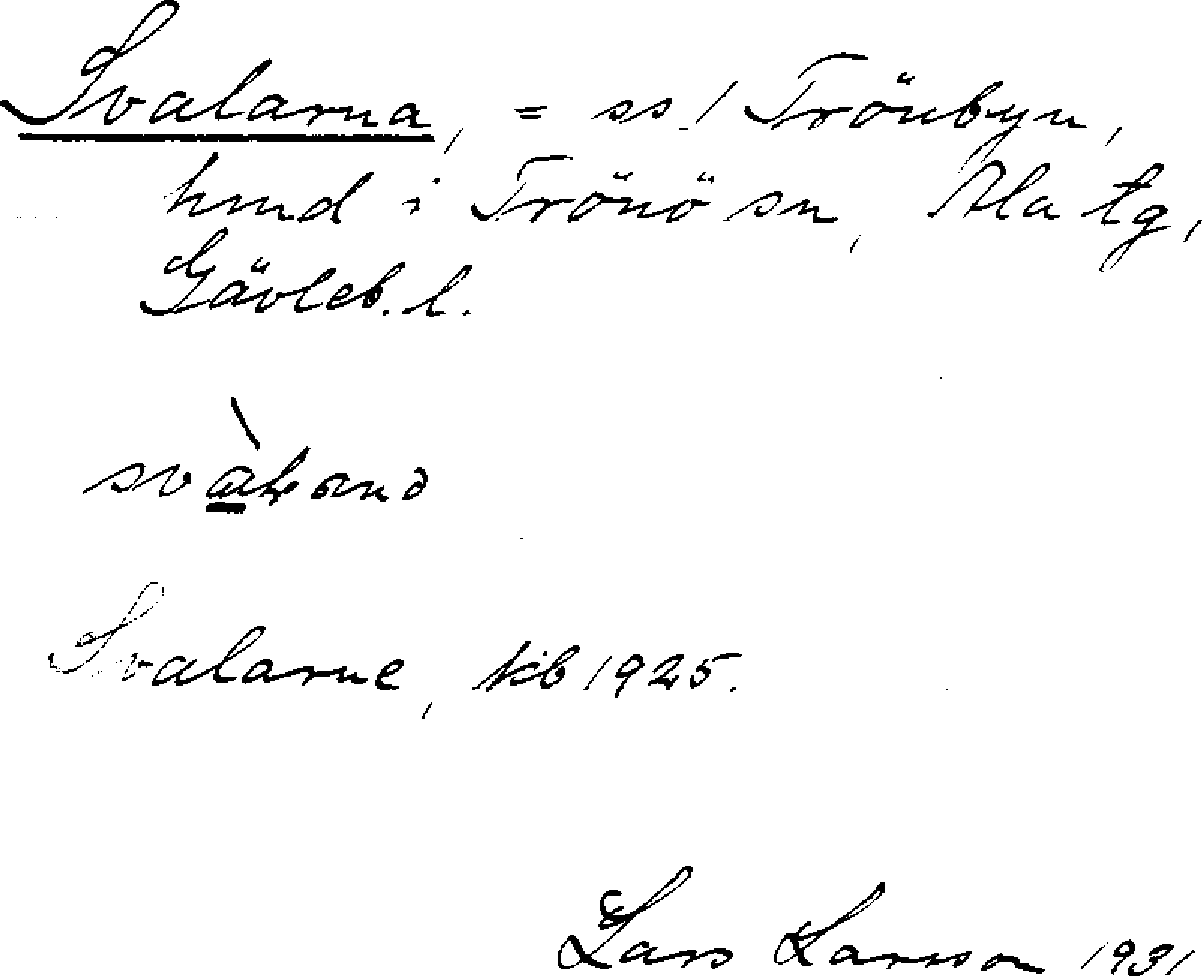 Svalarna, = ss / Trönbyn,
hmd i Trönö sn, Ala tg,
Gävleb. l.
Svalarne, kb 1925.
Lars Larsson 1931